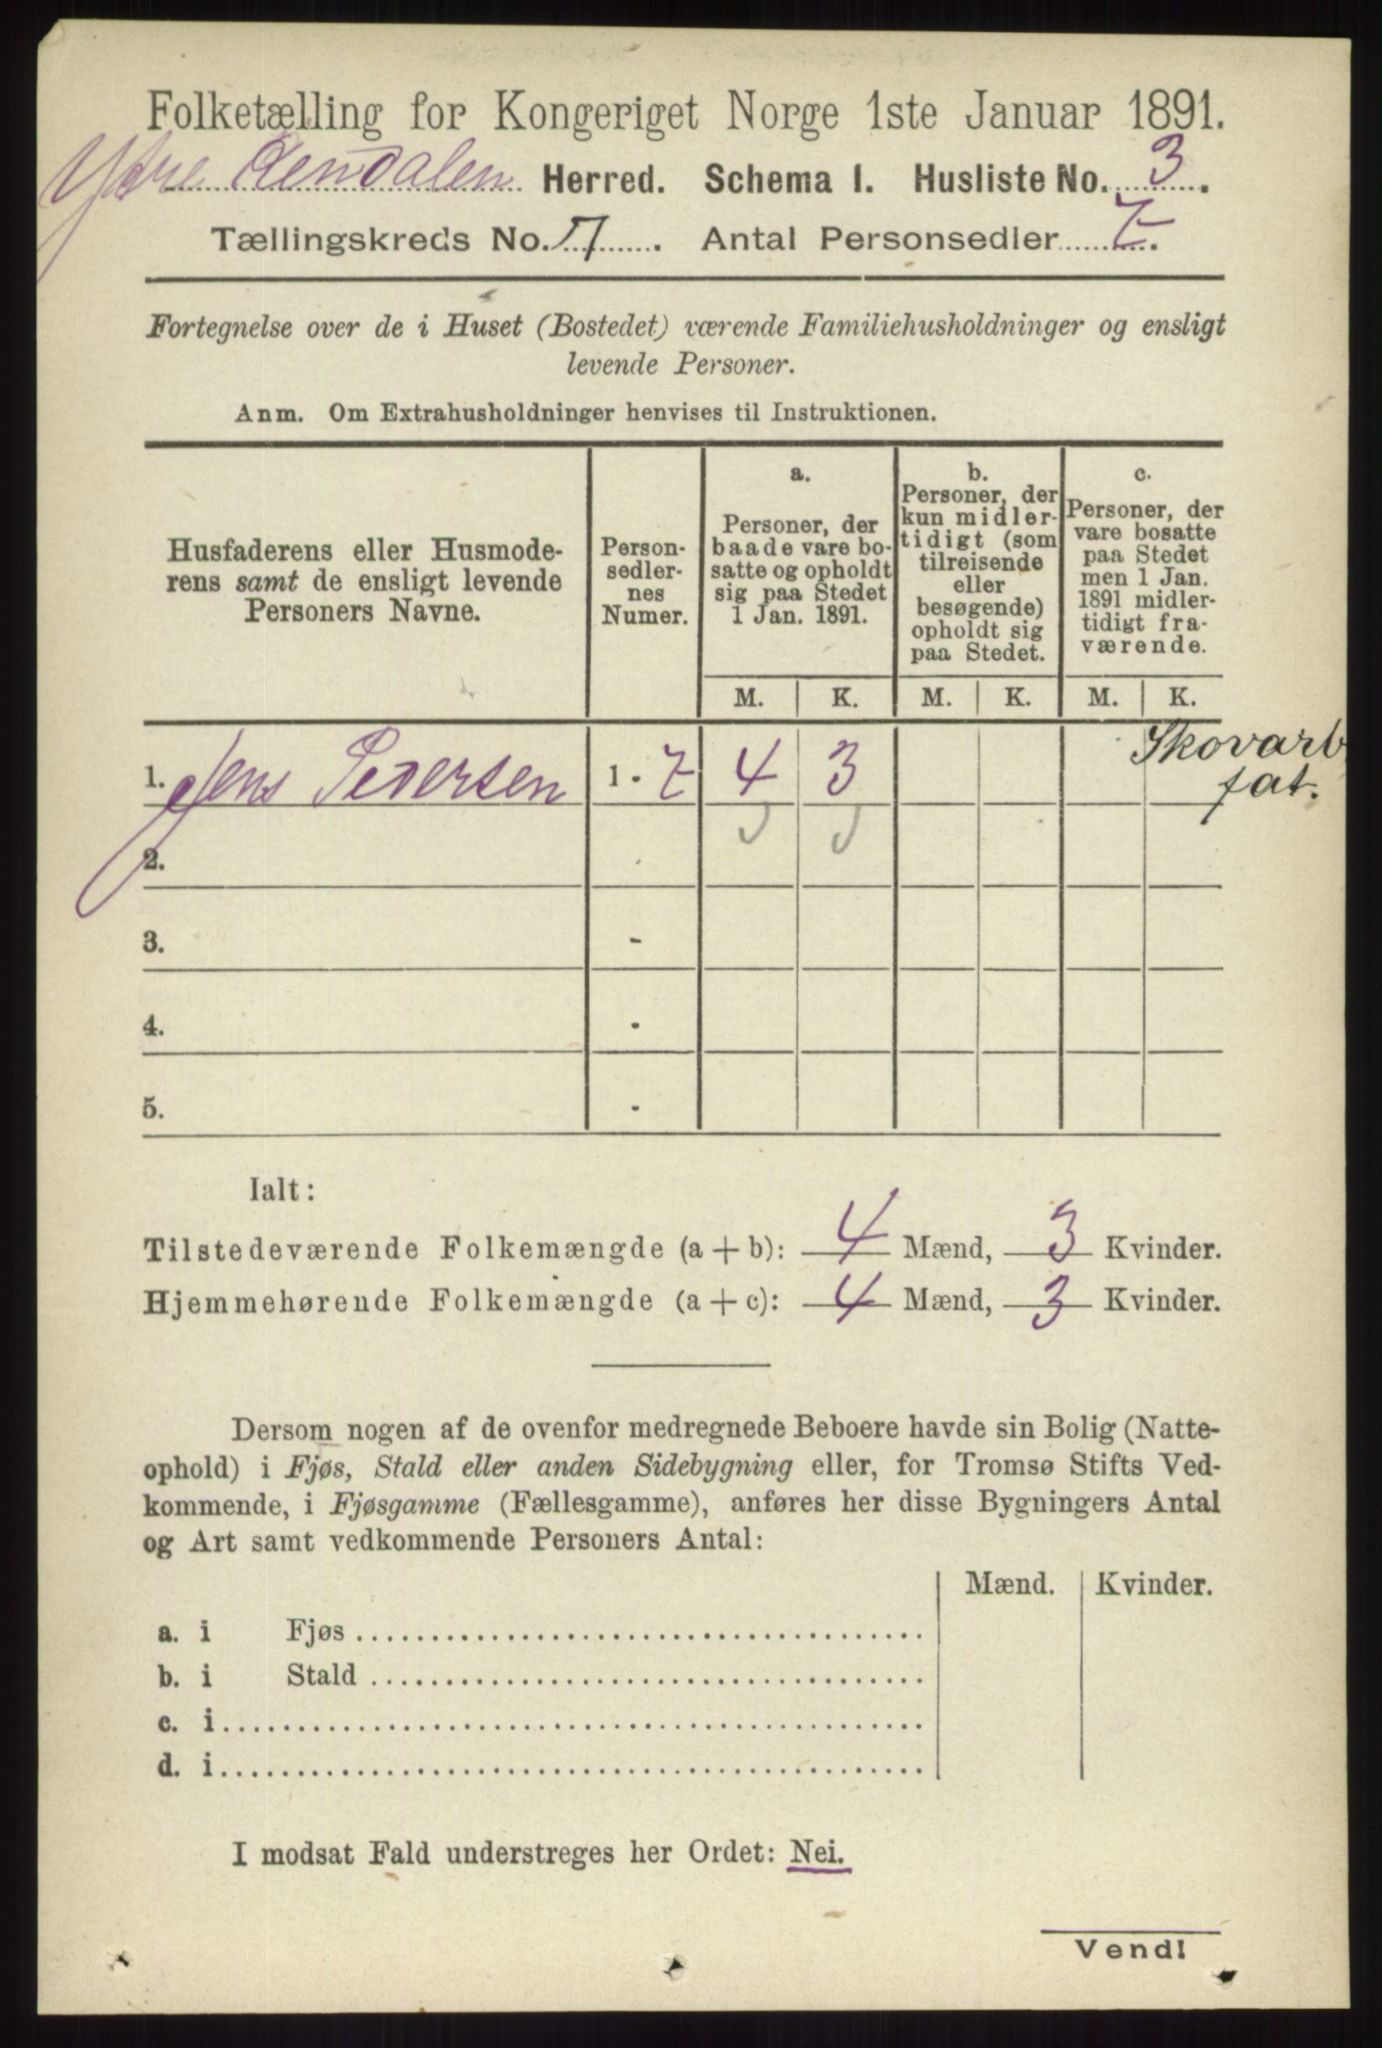 Folketælling for Kongeriget Norge 1ste Januar 1891.
Ytre Rendalen Herred. Schema I. Husliste No. 3.
Tællingskreds No. 7. Antal Personsedler 7.
Fortegnelse over de i Huset (Bostedet) værende Familiehusholdninger og ensligt
levende Personer.
Anm. Om Extrahusholdninger henvises til Instruktionen.
Husfaderens eller Husmode-
rens samt de ensligt levende
Personers Navne.
Person-
sedler-
nes
Numer.
a.
Personer, der
baade vare bo-
satte og opholdt
sig paa Stedet
1 Jan. 1891.
b.
Personer, der
kun midler-
tidigt (som
tilreisende
eller
besøgende)
opholdt sig
paa Stedet.
c.
Personer, der
vare bosatte
paa Stedet
men 1 Jan.
1891 midler-
tidigt fra-
værende.
M. K. M. K. M. K.
1. Jens Pedersen 1 - 7 4 3 Skovarb
fat.
2. -
3. -
4. -
5. -
Ialt:
Tilstedeværende Folkemængde (a + b): 4 Mænd, 3 Kvinder.
Hjemmehørende Folkemængde (a + c): 4 Mænd, 3 Kvinder.
Dersom nogen af de ovenfor medregnede Beboere havde sin Bolig (Natte-
ophold) i Fjøs, Stald eller anden Sidebygning eller, for Tromsø Stifts Ved-
kommende, i Fjøsgamme (Fællesgamme), anføres her disse Bygningers Antal
og Art samt vedkommende Personers Antal:
Mænd. Kvinder.
a. i Fjøs
b. i Stald
c. i
d. i
I modsat Fald understreges her Ordet: Nei.
Vend!